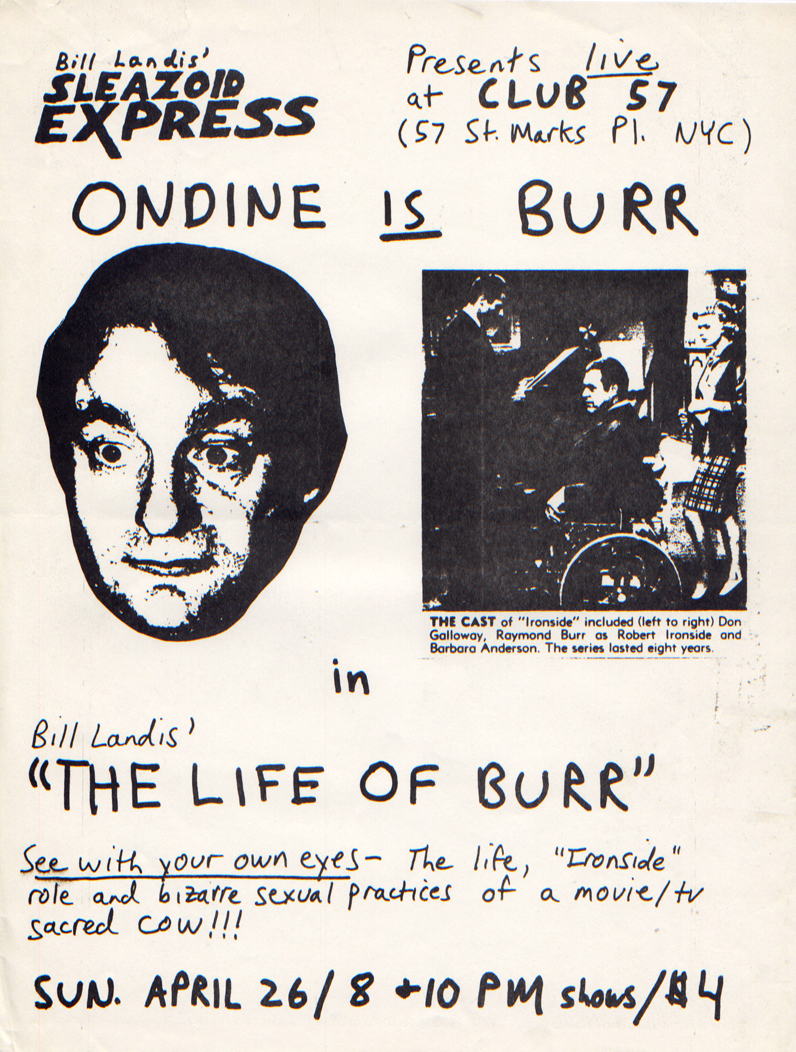 Bill Landis'
SLEAZOID
EXPRESS
Presents live
at CLUB 57
(57 St. Marks Pl. NYC)
ONDINE IS BURR
THE CAST of "Ironside" included (left to right) Don
Galloway, Raymond Burr as Robert Ironside and
Barbara Anderson. The series lasted eight years.
in
Bill Landis'
"THE LIFE OF BURR"
See with your own eyes- The life, "Ironside"
role and bizarre sexual practices of a movie/tv
sacred COW!!!
SUN. APRIL 26/ 8 +10 PM shows/$4